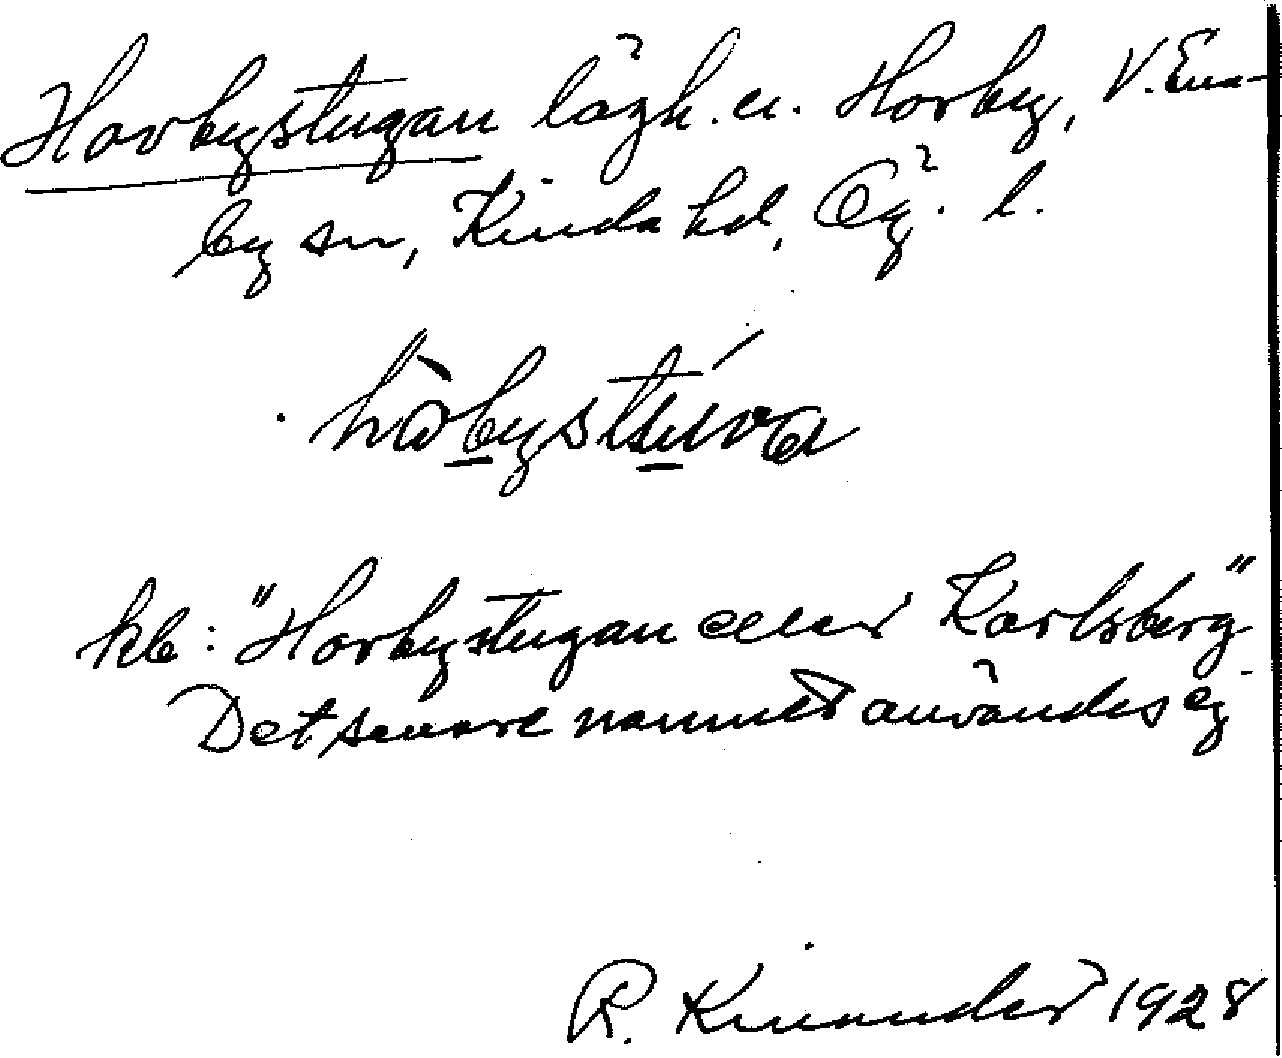 Horbystugan lägh. u. Horby, V. Ene-
by sn, Kinda hd, Ög. l.
hòbystúva
kb: "Horbystugan eller Karlsberg"
Det senare namnet användes ej
R. Kinander 1928